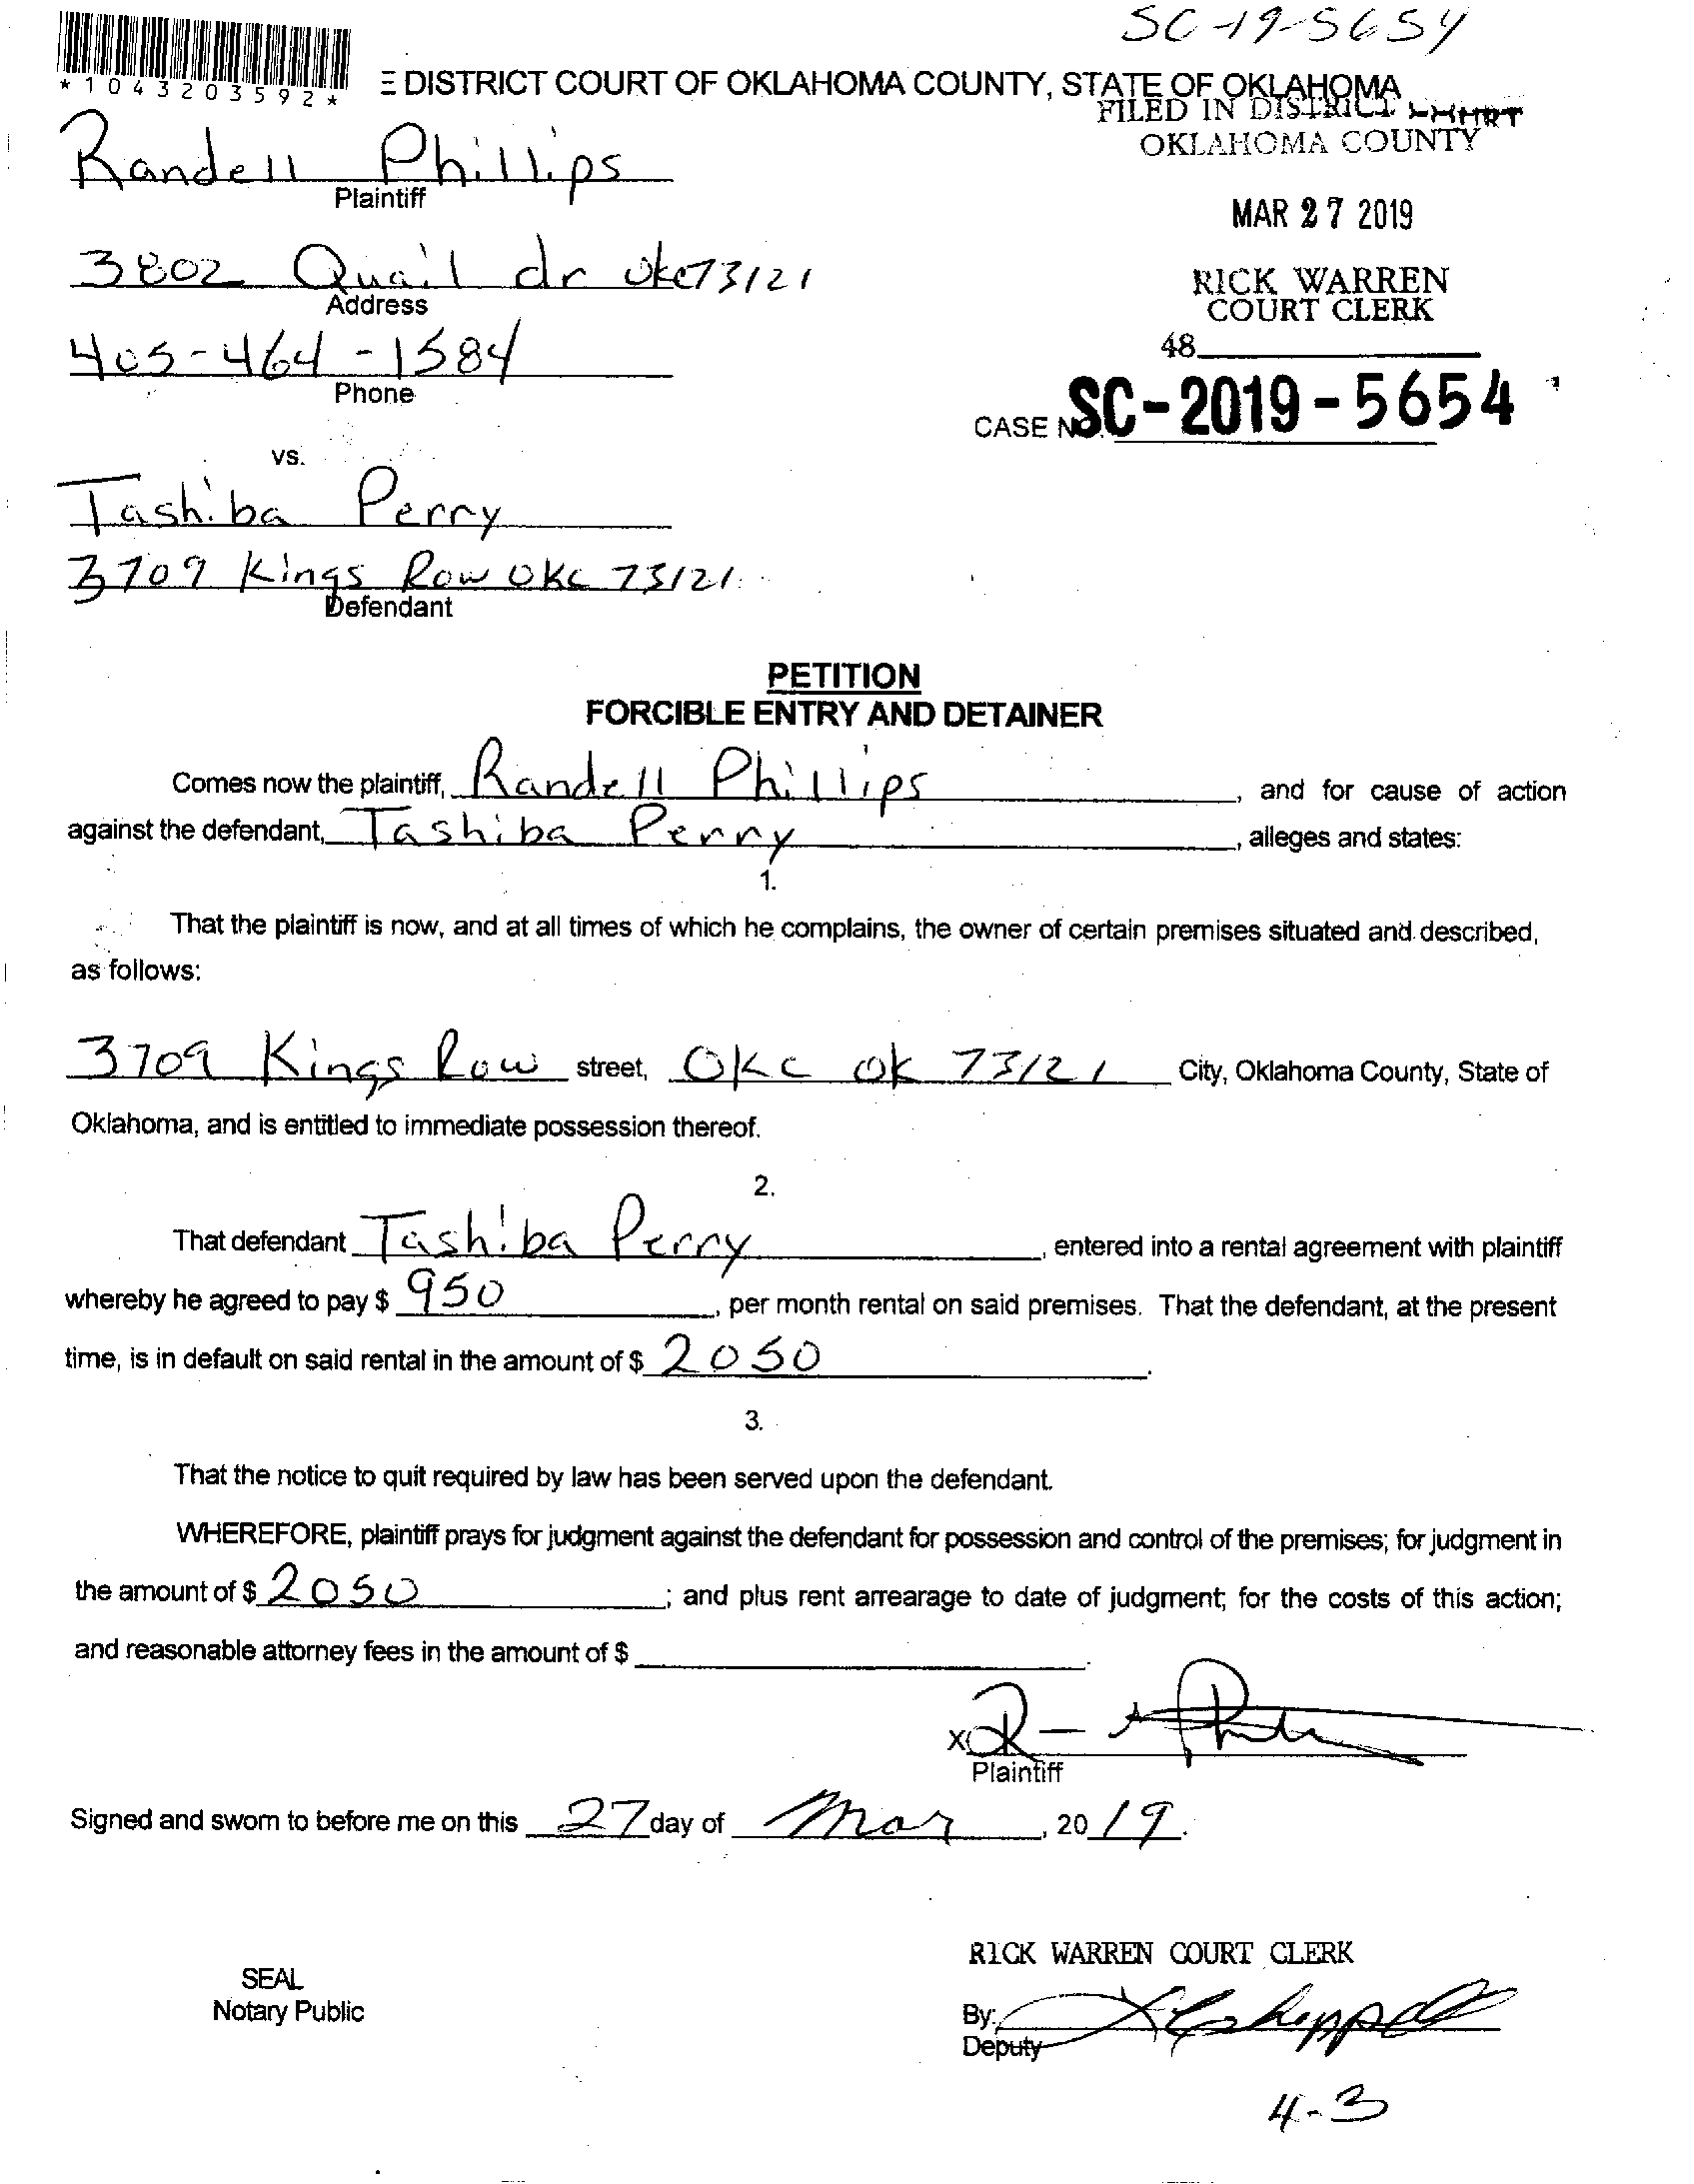 SC-19-5654
*1043203592*
E DISTRICT COURT OF OKLAHOMA COUNTY, STATE OF OKLAHOMA
FILED IN DISTRICT COURT
OKLAHOMA COUNTY
Randell Phillips
Plaintiff
MAR 27 2019
3802 Quail dr okc 73121
Address
RICK WARREN
COURT CLERK
405-464-1584
Phone
48
CASE NO. SC-2019-5654
vs.
Tashiba Perry
3709 Kings Row OKC 73121
Defendant
PETITION
FORCIBLE ENTRY AND DETAINER
Comes now the plaintiff, Randell Phillips, and for cause of action
against the defendant, Tashiba Perry, alleges and states:
1.
That the plaintiff is now, and at all times of which he complains, the owner of certain premises situated and described,
as follows:
3709 Kings Row street, OKC OK 73121 City, Oklahoma County, State of
Oklahoma, and is entitled to immediate possession thereof.
2.
That defendant Tashiba Perry, entered into a rental agreement with plaintiff
whereby he agreed to pay $ 950, per month rental on said premises. That the defendant, at the present
time, is in default on said rental in the amount of $ 2050.
3.
That the notice to quit required by law has been served upon the defendant.
WHEREFORE, plaintiff prays for judgment against the defendant for possession and control of the premises; for judgment in
the amount of $ 2050; and plus rent arrearage to date of judgment; for the costs of this action;
and reasonable attorney fees in the amount of $.
X
Plaintiff
Signed and sworn to before me on this 27 day of Mar, 2019.
RICK WARREN COURT CLERK
SEAL
Notary Public
By:
Deputy
4-3